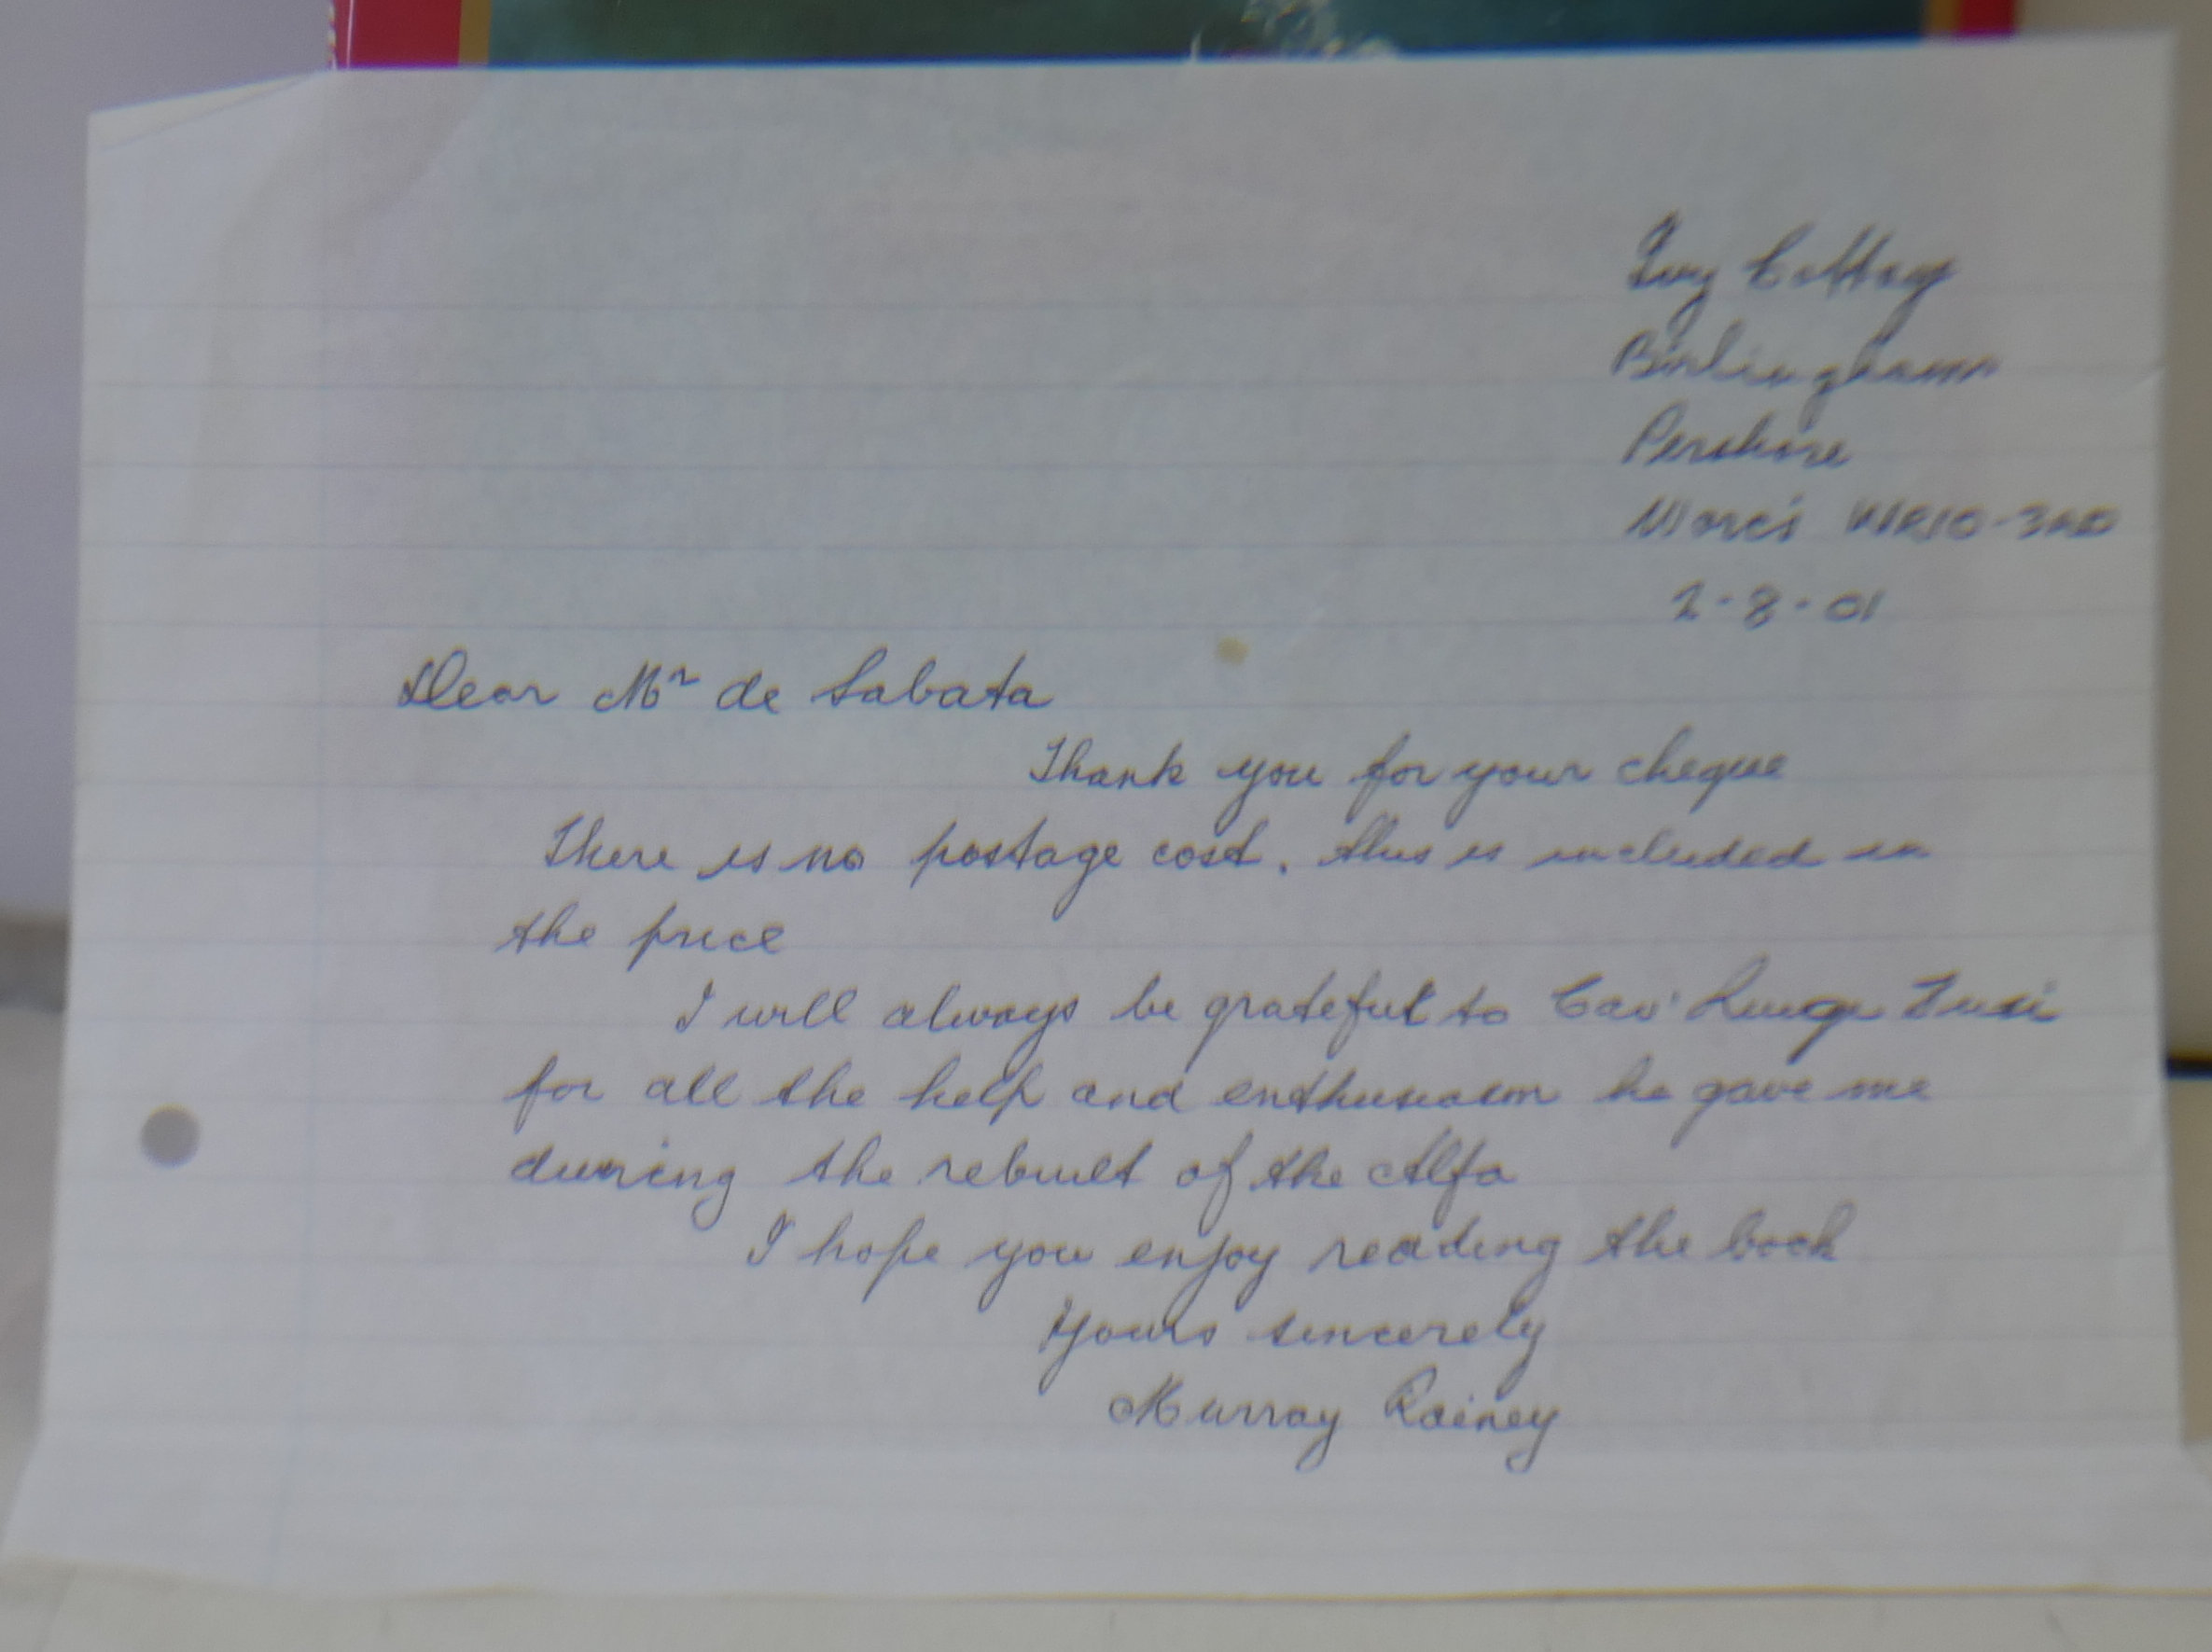 Ivy Cottage
Birlingham
Pershore
Worc's WR10-3AD
2-8-01
Dear Mr de Sabata
Thank you for your cheque
There is no postage cost. this is included in
the price
I will always be grateful to Cav' Luigi Fusi
for all the help and enthusiasm he gave me
during the rebuilt of the Alfa
I hope you enjoy reading the book
Yours sincerely
Murray Rainey